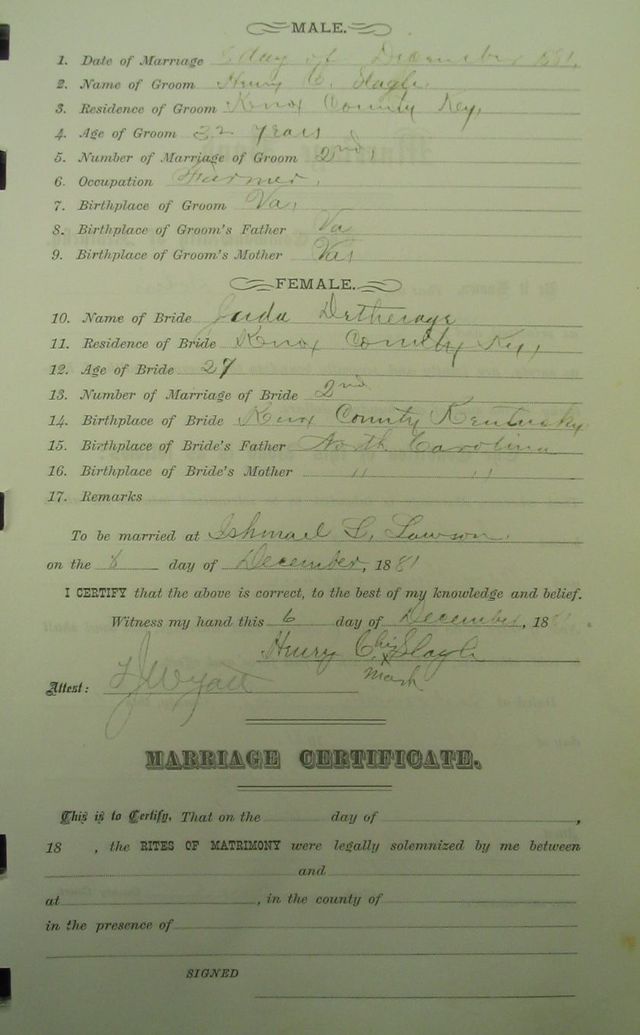 MALE.
1. Date of Marriage 8 day of December 1881.
2. Name of Groom Henry C. Slagle.
3. Residence of Groom Knox County Key,
4. Age of Groom 32 years
5. Number of Marriage of Groom 2nd,
6. Occupation Farmer,
7. Birthplace of Groom Va,
8. Birthplace of Groom's Father Va
9. Birthplace of Groom's Mother Va,
FEMALE.
10. Name of Bride Detherage
11. Residence of Bride Knox County Key,
12. Age of Bride 27
13. Number of Marriage of Bride 2nd
14. Birthplace of Bride Knox County Kentucky
15. Birthplace of Bride's Father North Carolina
16. Birthplace of Bride's Mother " "
17. Remarks
To be married at Ishmael L. Lawson.
on the 8 day of December, 1881
I CERTIFY that the above is correct, to the best of my knowledge and belief.
Witness my hand this 6 day of December, 18
Henry C. his Slagle
mark
Attest: Wyatt
MARRIAGE CERTIFICATE.
This is to Certify, That on the day of ,
18 , the RITES OF MATRIMONY were legally solemnized by me between
and
at , in the county of
in the presence of
SIGNED